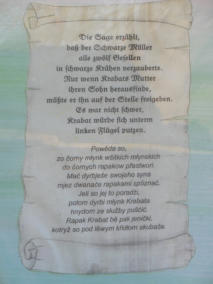 Die Sage erzählt,
daß der Schwarze Müller
alle zwölf Gesellen
in schwarze Krähen verzauberte.
Nur wenn Krabats Mutter
ihren Sohn herausfinde,
müßte er ihn auf der Stelle freigeben.
Es war nicht schwer,
Krabat würde sich unterm
linken Flügel putzen.
Powěda so,
zo čorny młynk wšěch młynskich
do čornych rapakow přetwori.
Mać dyrbješe swojeho syna
mjez dwanaće rapakami spóznać.
Jeli so jej to poradźi,
potom dyrbi młynk Krabata
hnydom ze słužby pušćić.
Rapak Krabat bě pak jenički,
kotryž so pod lěwym křidłom skubaše.